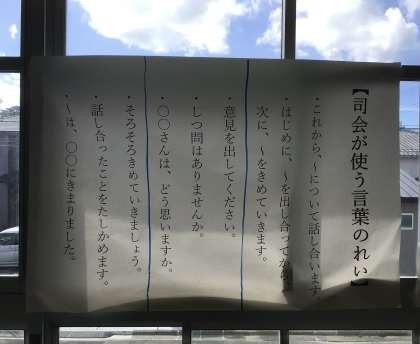 【司会が使う言葉のれい】
・これから、～について話し合います。
・はじめに、～を出し合ってから、
次に、～をきめていきます。
・意見を出してください。
・しつ問はありませんか。
・〇〇さんは、どう思いますか。
・そろそろきめていきましょう。
・話し合ったことをたしかめます。
・～は、〇〇にきまりました。